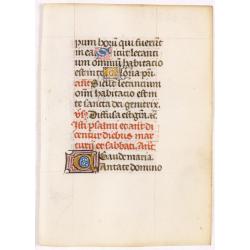 pum hoȝiū qui fuerūt
in ea. Sicut letanti
um omniū habitatio
est in te Gloria pri.
añt Sicut letantium
omniū habitatio est in
te sancta dei genitrix.
v̄s. Diffusa est grā. ac
Isti psalmi et ant di
centur diebus mar
curij et sabbati. Ant.
Gaude maria.
Cantate domino